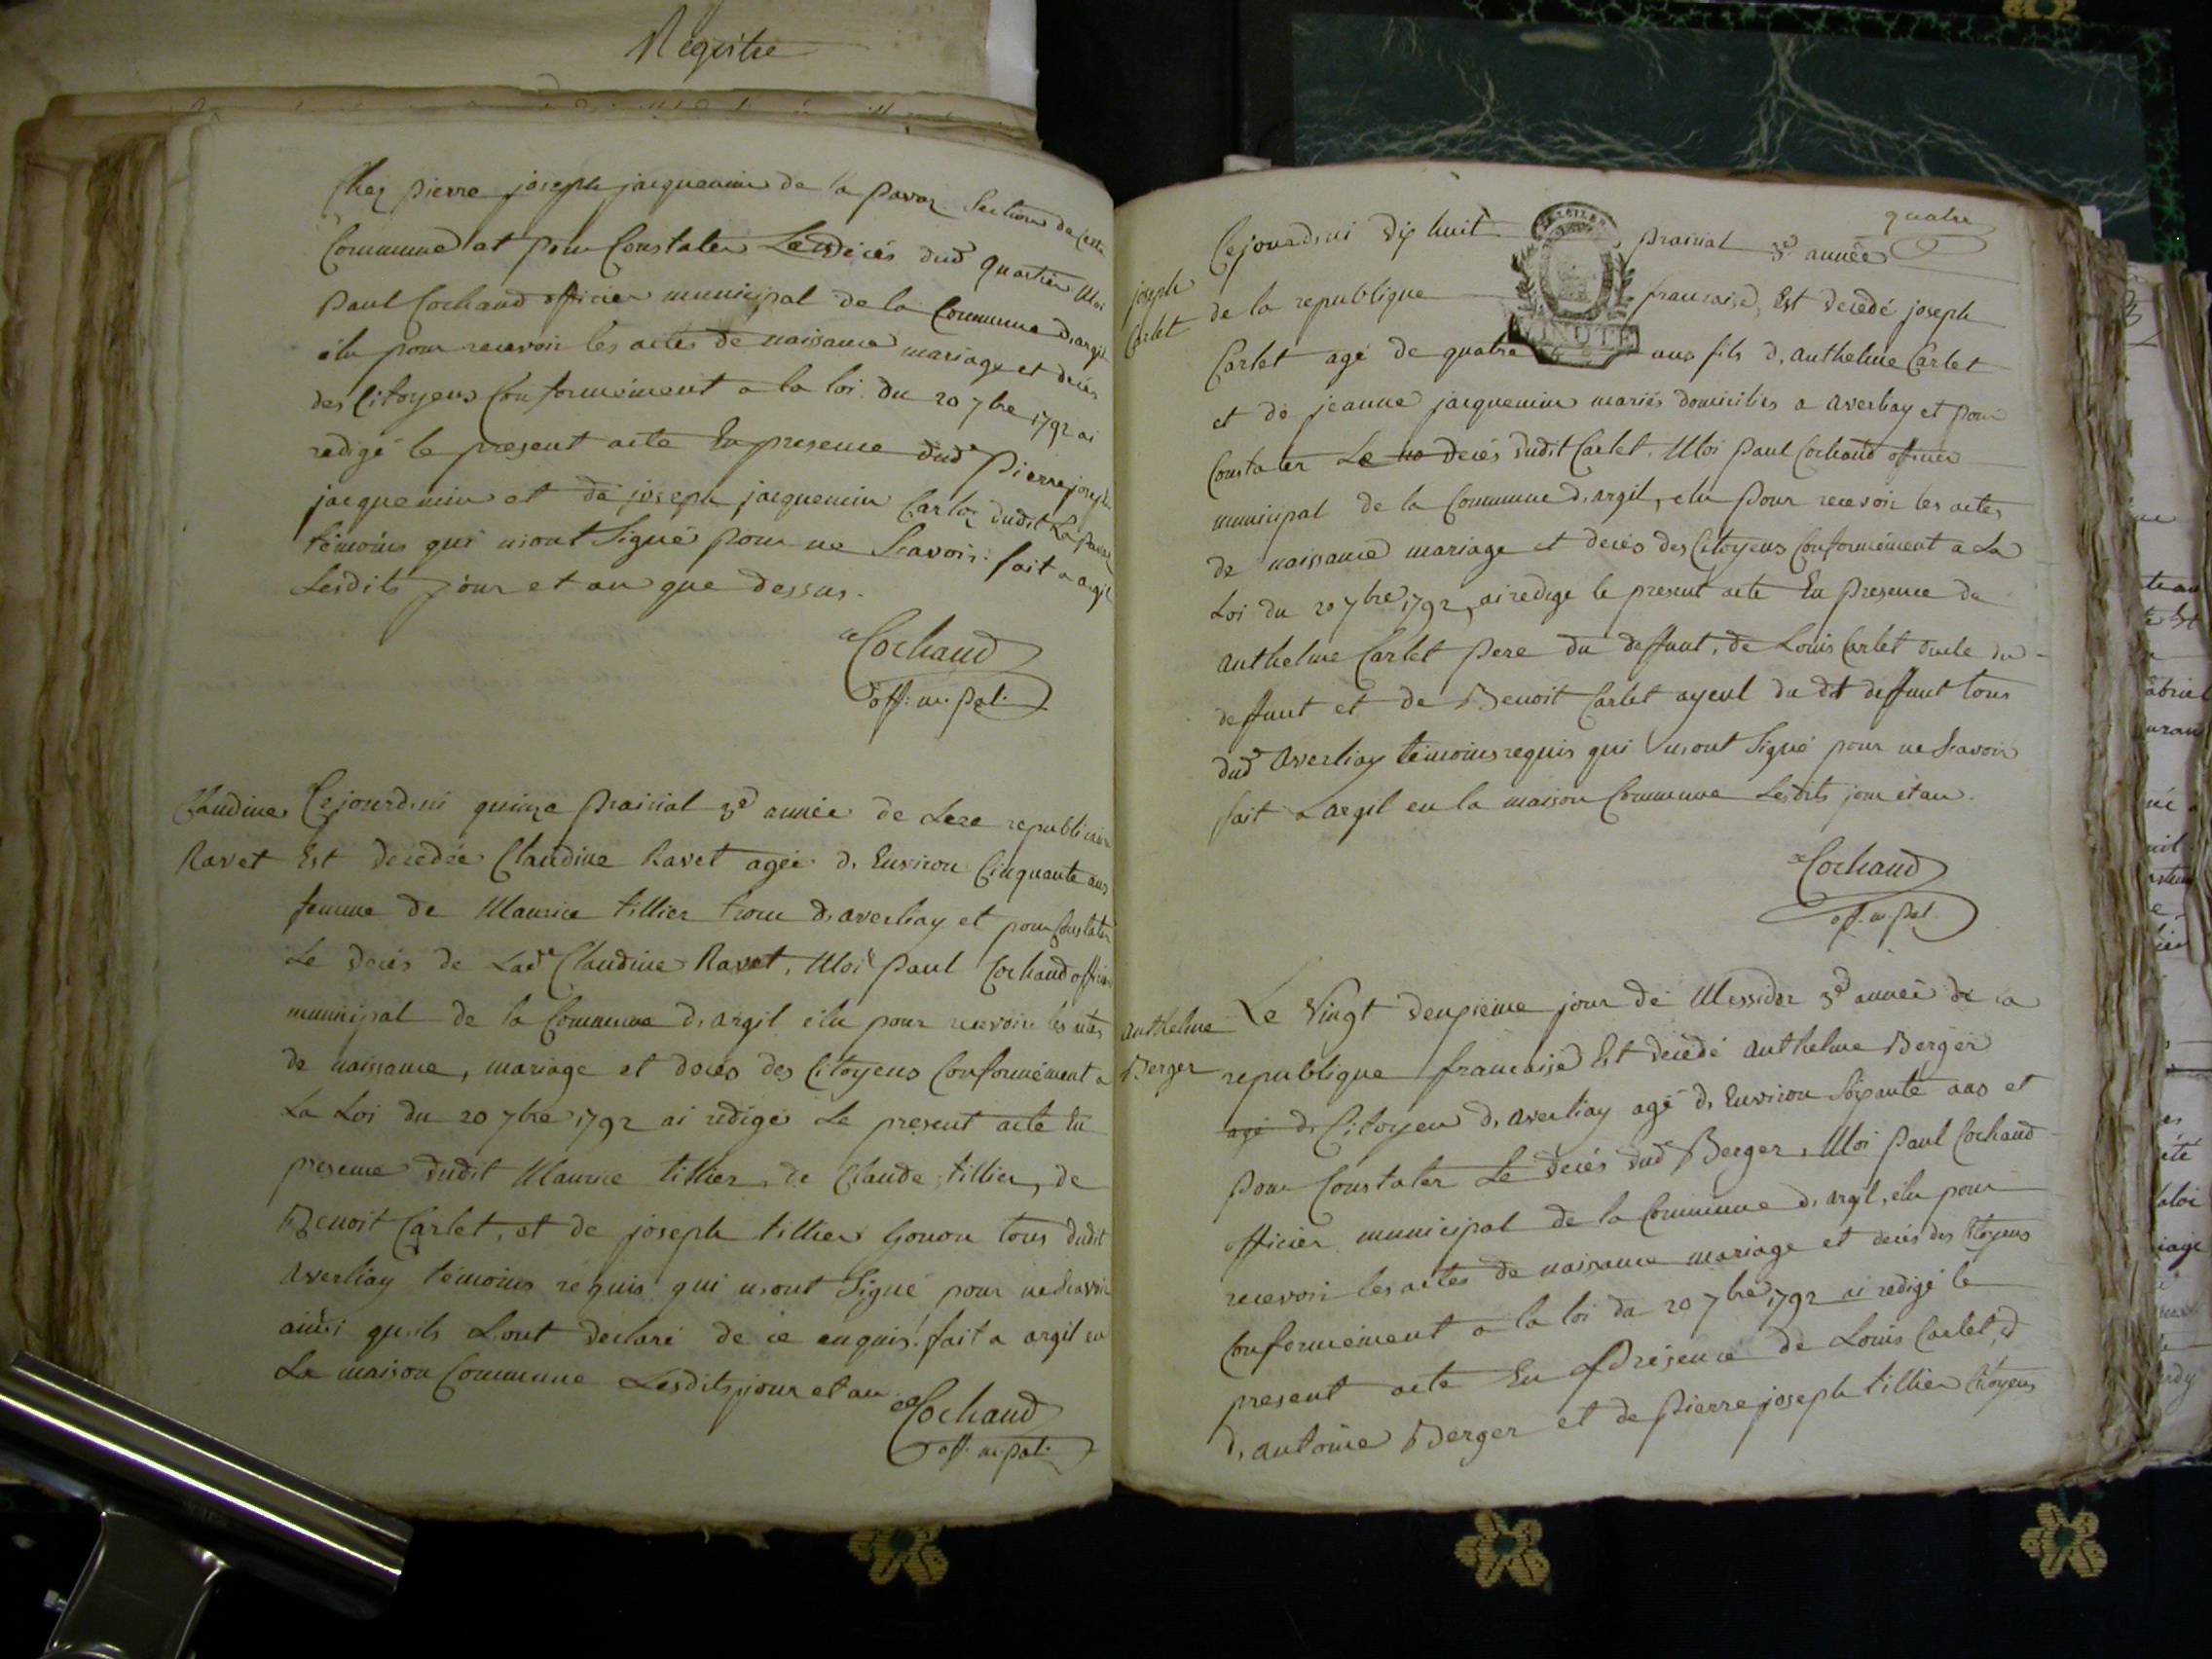 Registre
chez pierre joseph jacquemin de la pavaz section de cette
Commune et pour Constater Le décés dud quartier Moi
Paul Cochaud officier municipal de la Commune d'argil
élu pour recevoir les actes de naissance mariage et décés
des Citoyens Conformément a la loi du 20 7bre 1792 ai
redigé le present acte En presence dud Pierre joseph
jacquemin et de joseph jacquemin Carloz dudit La pavaz
témoins qui n'ont Signé pour ne Scavoir. fait a argil
Lesdits jour et an que dessus.
Cochaud
off. m.pal.
Claudine
Ravet
Cejourd'ui quinze Prairial 3e année de Lere republicaine
Est decedée Claudine Ravet agée d'Environ Cinquante ans
femme de Maurice tillier d'averliay et pour Constater
Le decés de Lade Claudine Ravet, Moi Paul Cochaud officier
municipal de la Commune d'argil élu pour recevoir les actes
de naissance, mariage et decés des Citoyens Conformément a
La Loi du 20 7bre 1792 ai redigé Le present acte En
presence dudit Maurice tillier, de Claude tillier, de
Benoit Carlet, et de joseph tillier Gonon tous dudit
averliay témoins requis qui n'ont Signé pour ne Scavoir
ainsi qu'ils L'ont declaré de ce enquis. fait a argil en
La maison Commune Lesdits jour et an
Cochaud
off. m.pal.
quatre
joseph
Carlet
Cejourd'ui dix huit prairial 3e année
de la republique francaise, Est decedé joseph
MINUTE
Carlet agé de quatre ans fils d'anthelme Carlet
et de jeanne jacquemin mariés domiciliés a averliay et pour
Constater Le decés dudit Carlet. Moi Paul Cochaud officier
municipal de la Commune d'argil, elu pour recevoir les actes
de naissance mariage et decés des Citoyens Conformément a La
Loi du 20 7bre 1792, ai redigé le present acte En Presence de
anthelme Carlet Pere du deffunt, de Louis Carlet oncle du
deffunt et de Benoit Carlet ayeul du dit deffunt tous
dud averliay témoins requis qui n'ont Signé pour ne Scavoir
fait a argil en la maison Commune Lesdits jour et an.
Cochaud
off. m.pal.
anthelme
Berger
Le Vingt deuxieme jour de Messidor 3e année de la
republique francaise Est decedé anthelme Berger
agé d. Citoyen d'averliay agé d'Environ Soixante ans et
pour Constater Le decés dud Berger, Moi Paul Cochaud
officier municipal de la Commune d'argil, élu pour
recevoir les actes de naissance mariage et decés des Citoyens
Conformément a la loi du 20 7bre 1792 ai redigé le
present acte En Présence de Louis Carlet, d
d'antoine Berger et de Pierre joseph tillier Citoyens